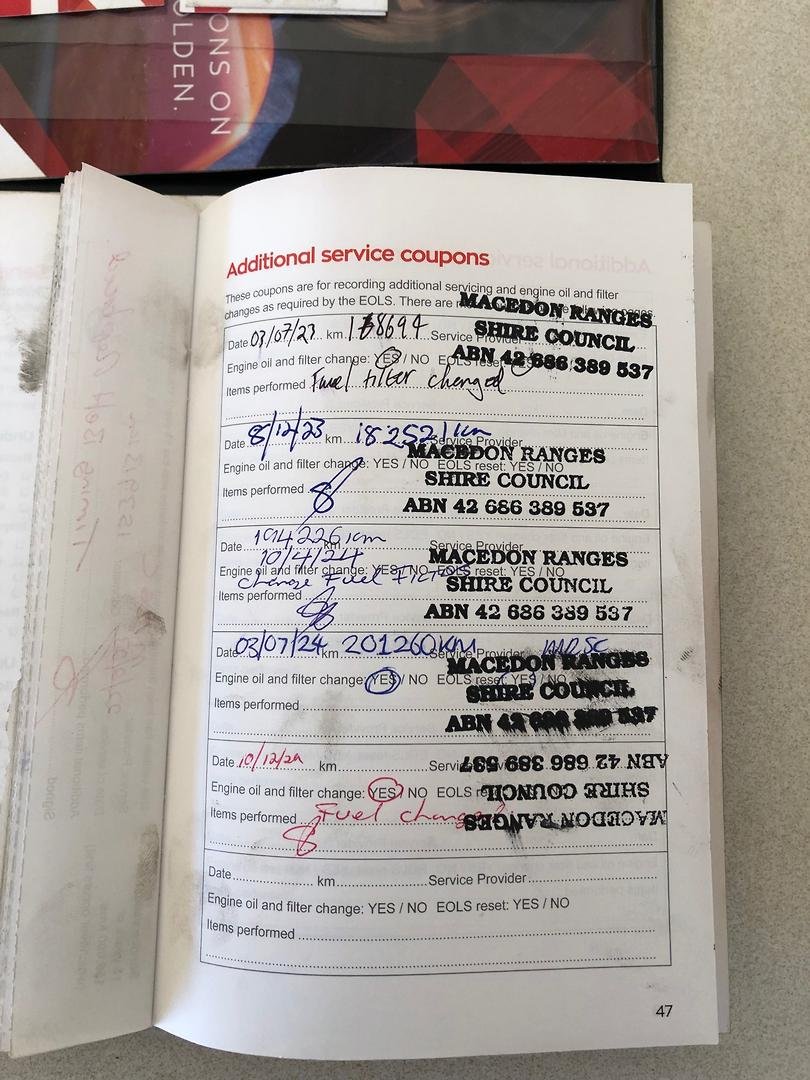 ONS ON
OLDEN.
Additional service coupons
These coupons are for recording additional servicing and engine oil and filter
changes as required by the EOLS. There are
MACEDON RANGES
SHIRE COUNCIL
ABN 42 686 389 537
Date 03/07/23 km 168694 Service Provider
Engine oil and filter change: YES / NO EOLS reset: YES
Items performed Fuel filter changed
Date 8/12/23 km 182521km Service Provider
MACEDON RANGES
Engine oil and filter change: YES / NO EOLS reset: YES / NO
SHIRE COUNCIL
Items performed
ABN 42 686 389 537
194226km
Date 10/4/24 km Service Provider
MACEDON RANGES
Engine oil and filter change: YES / NO EOLS reset: YES / NO
change Fuel
SHIRE COUNCIL
Items performed
ABN 42 686 389 537
Date 03/07/24 km 201260KM Service Provider
MACEDON RANGES
Engine oil and filter change: YES / NO EOLS reset: YES / NO
SHIRE COUNCIL
Items performed
ABN 42 686 389 537
Date 10/12/24 km Servic
ABN 42 686 389 537
Engine oil and filter change: YES / NO EOLS
SHIRE COUNCIL
Items performed Fuel changed
MACEDON RANGES
Date km Service Provider
Engine oil and filter change: YES / NO EOLS reset: YES / NO
Items performed
47